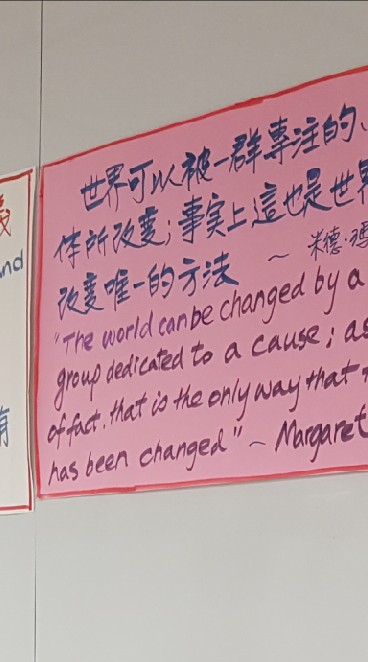 世界可以被一群專注的、
体所改变；事实上這也是世界
改变唯一的方法 ～ 米德·瑪
"The world can be changed by a
group dedicated to a cause; as
of fact, that is the only way that
has been changed" ~ Margaret
nd
有